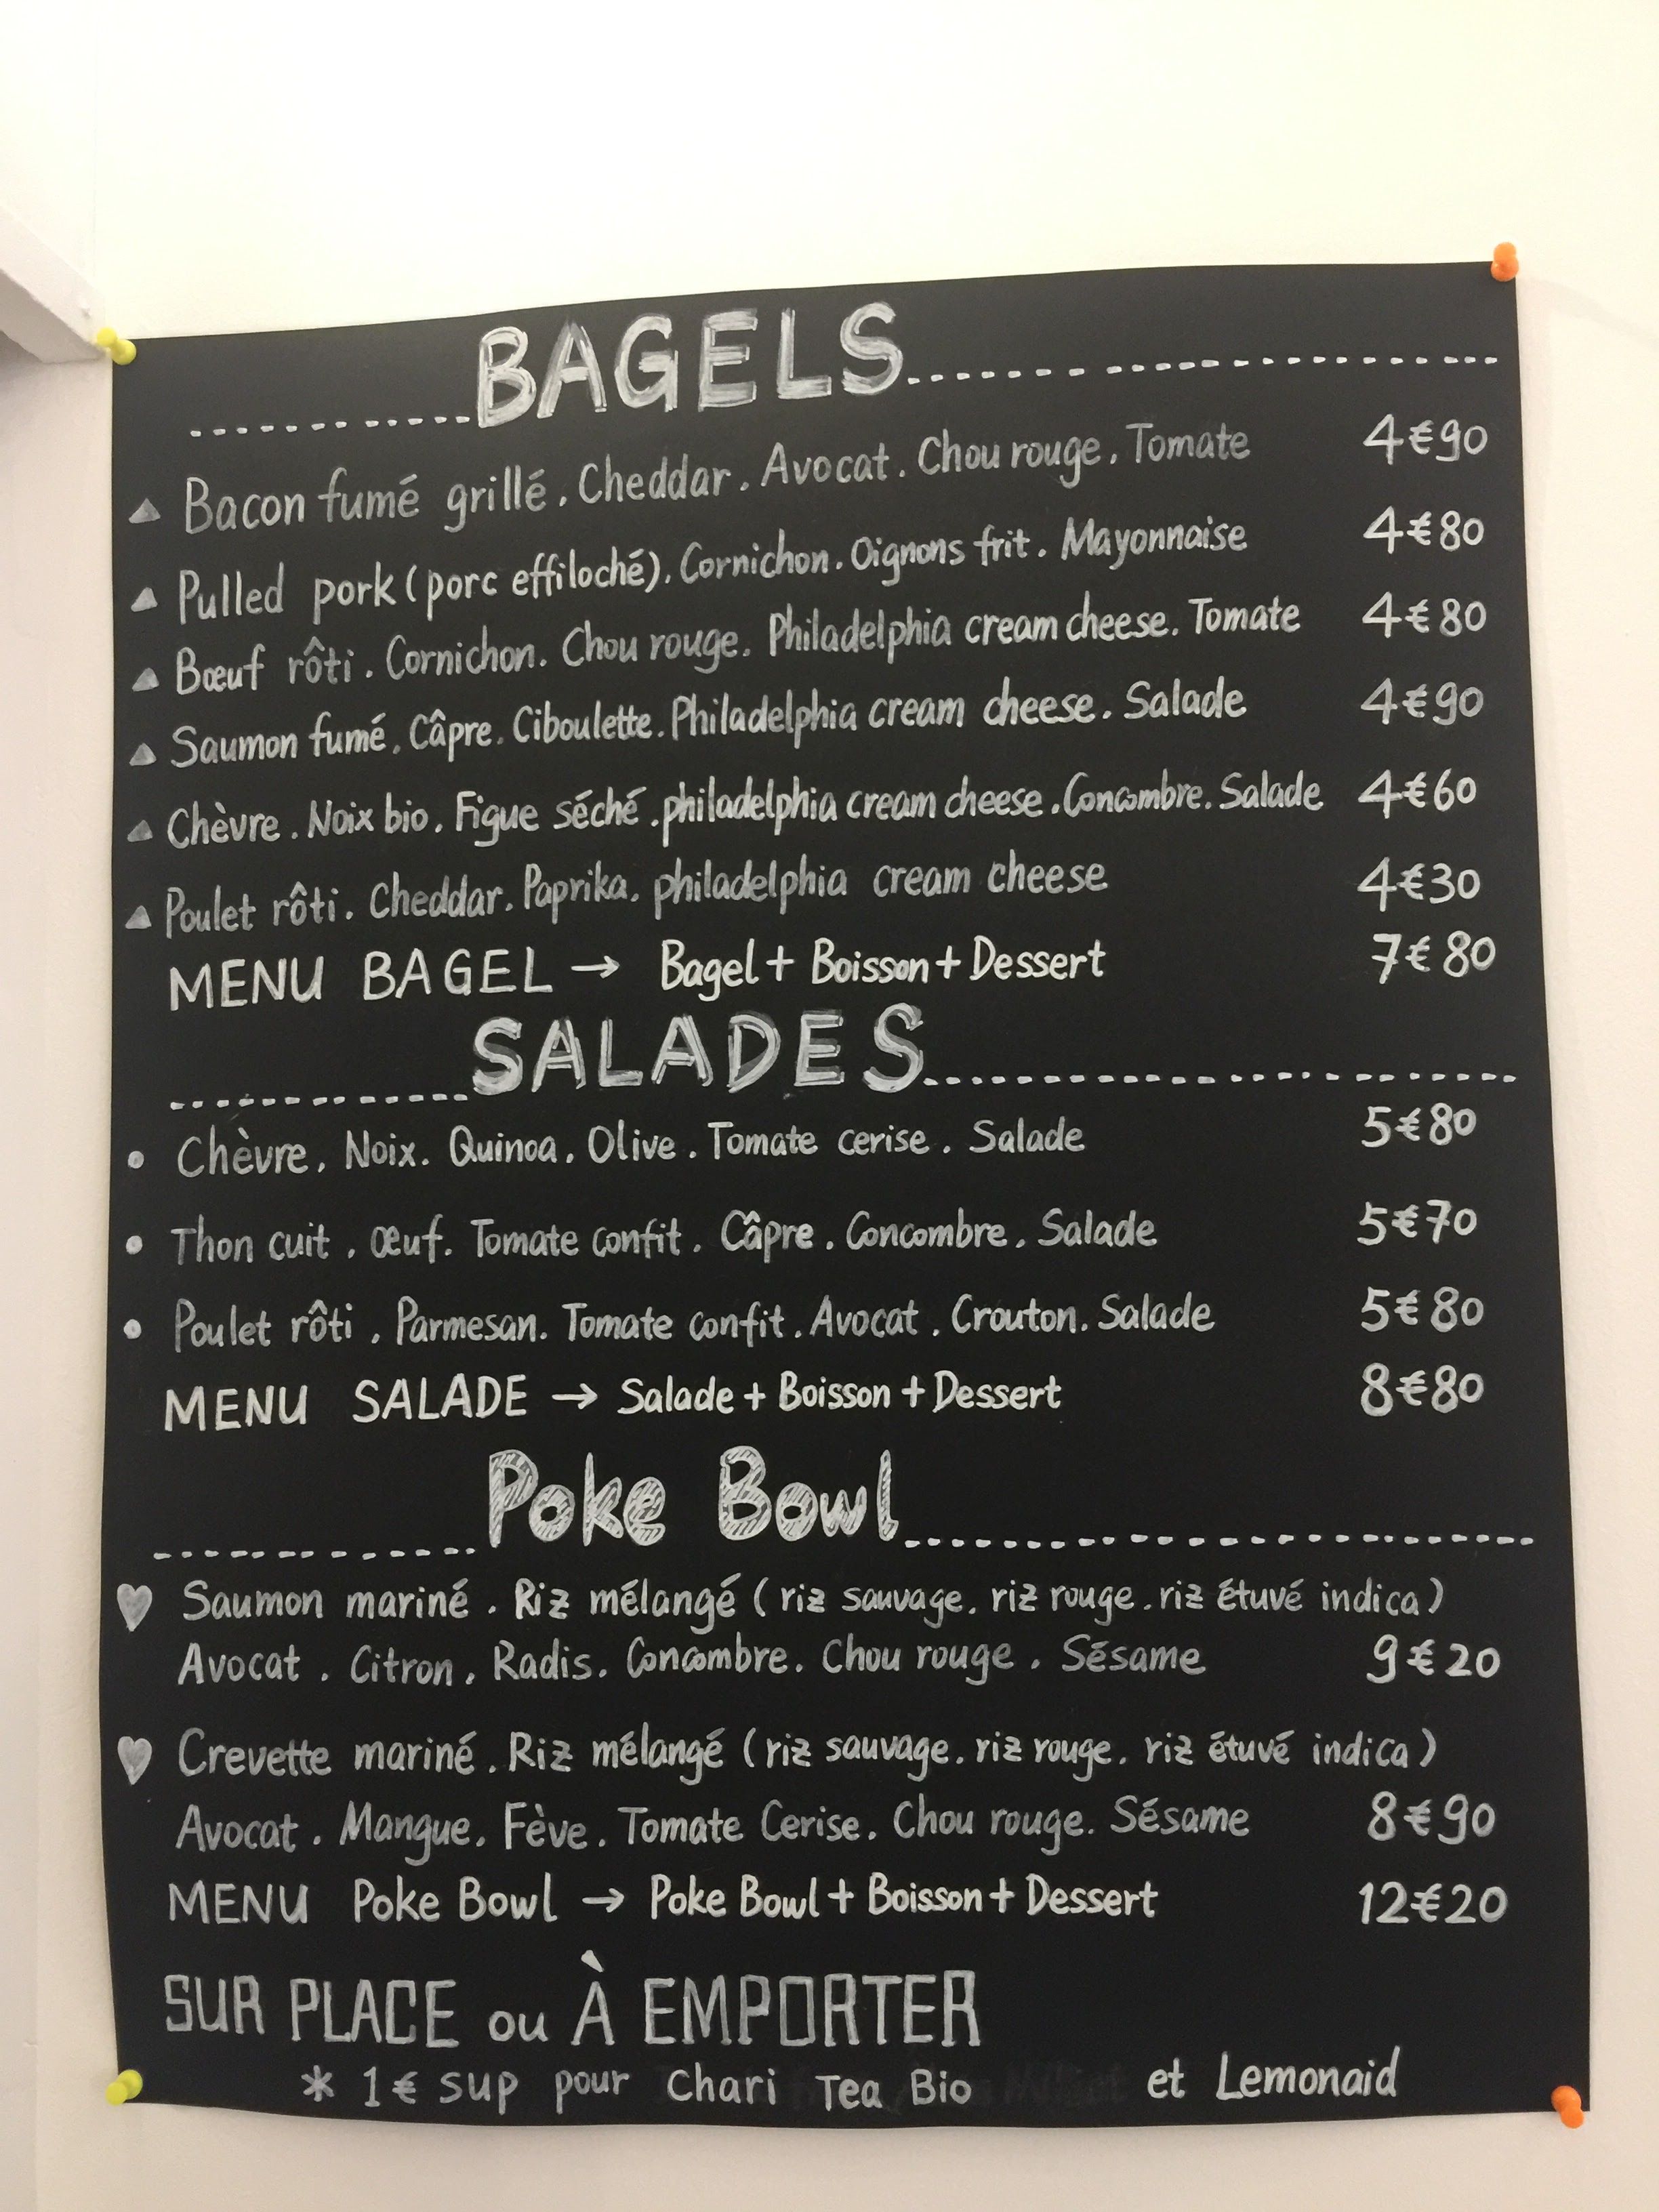 BAGELS
Bacon fumé grillé. Cheddar. Avocat. Chou rouge. Tomate 4€90
Pulled pork (porc effiloché). Cornichon. Oignons frit. Mayonnaise 4€80
Bœuf rôti. Cornichon. Chou rouge. Philadelphia cream cheese. Tomate 4€80
Saumon fumé. Câpre. Ciboulette. Philadelphia cream cheese. Salade 4€90
Chèvre. Noix bio. Figue séché. philadelphia cream cheese. Concombre. Salade 4€60
Poulet rôti. Cheddar. Paprika. philadelphia cream cheese 4€30
MENU BAGEL → Bagel + Boisson + Dessert 7€80
SALADES
Chèvre. Noix. Quinoa. Olive. Tomate cerise. Salade 5€80
Thon cuit. Œuf. Tomate confit. Câpre. Concombre. Salade 5€70
Poulet rôti. Parmesan. Tomate confit. Avocat. Crouton. Salade 5€80
MENU SALADE → Salade + Boisson + Dessert 8€80
Poke Bowl
Saumon mariné. Riz mélangé (riz sauvage. riz rouge. riz étuvé indica)
Avocat. Citron. Radis. Concombre. Chou rouge. Sésame 9€20
Crevette mariné. Riz mélangé (riz sauvage. riz rouge. riz étuvé indica)
Avocat. Mangue. Fève. Tomate Cerise. Chou rouge. Sésame 8€90
MENU Poke Bowl → Poke Bowl + Boisson + Dessert 12€20
SUR PLACE ou À EMPORTER
* 1€ sup pour Chari Tea Bio et Lemonaid